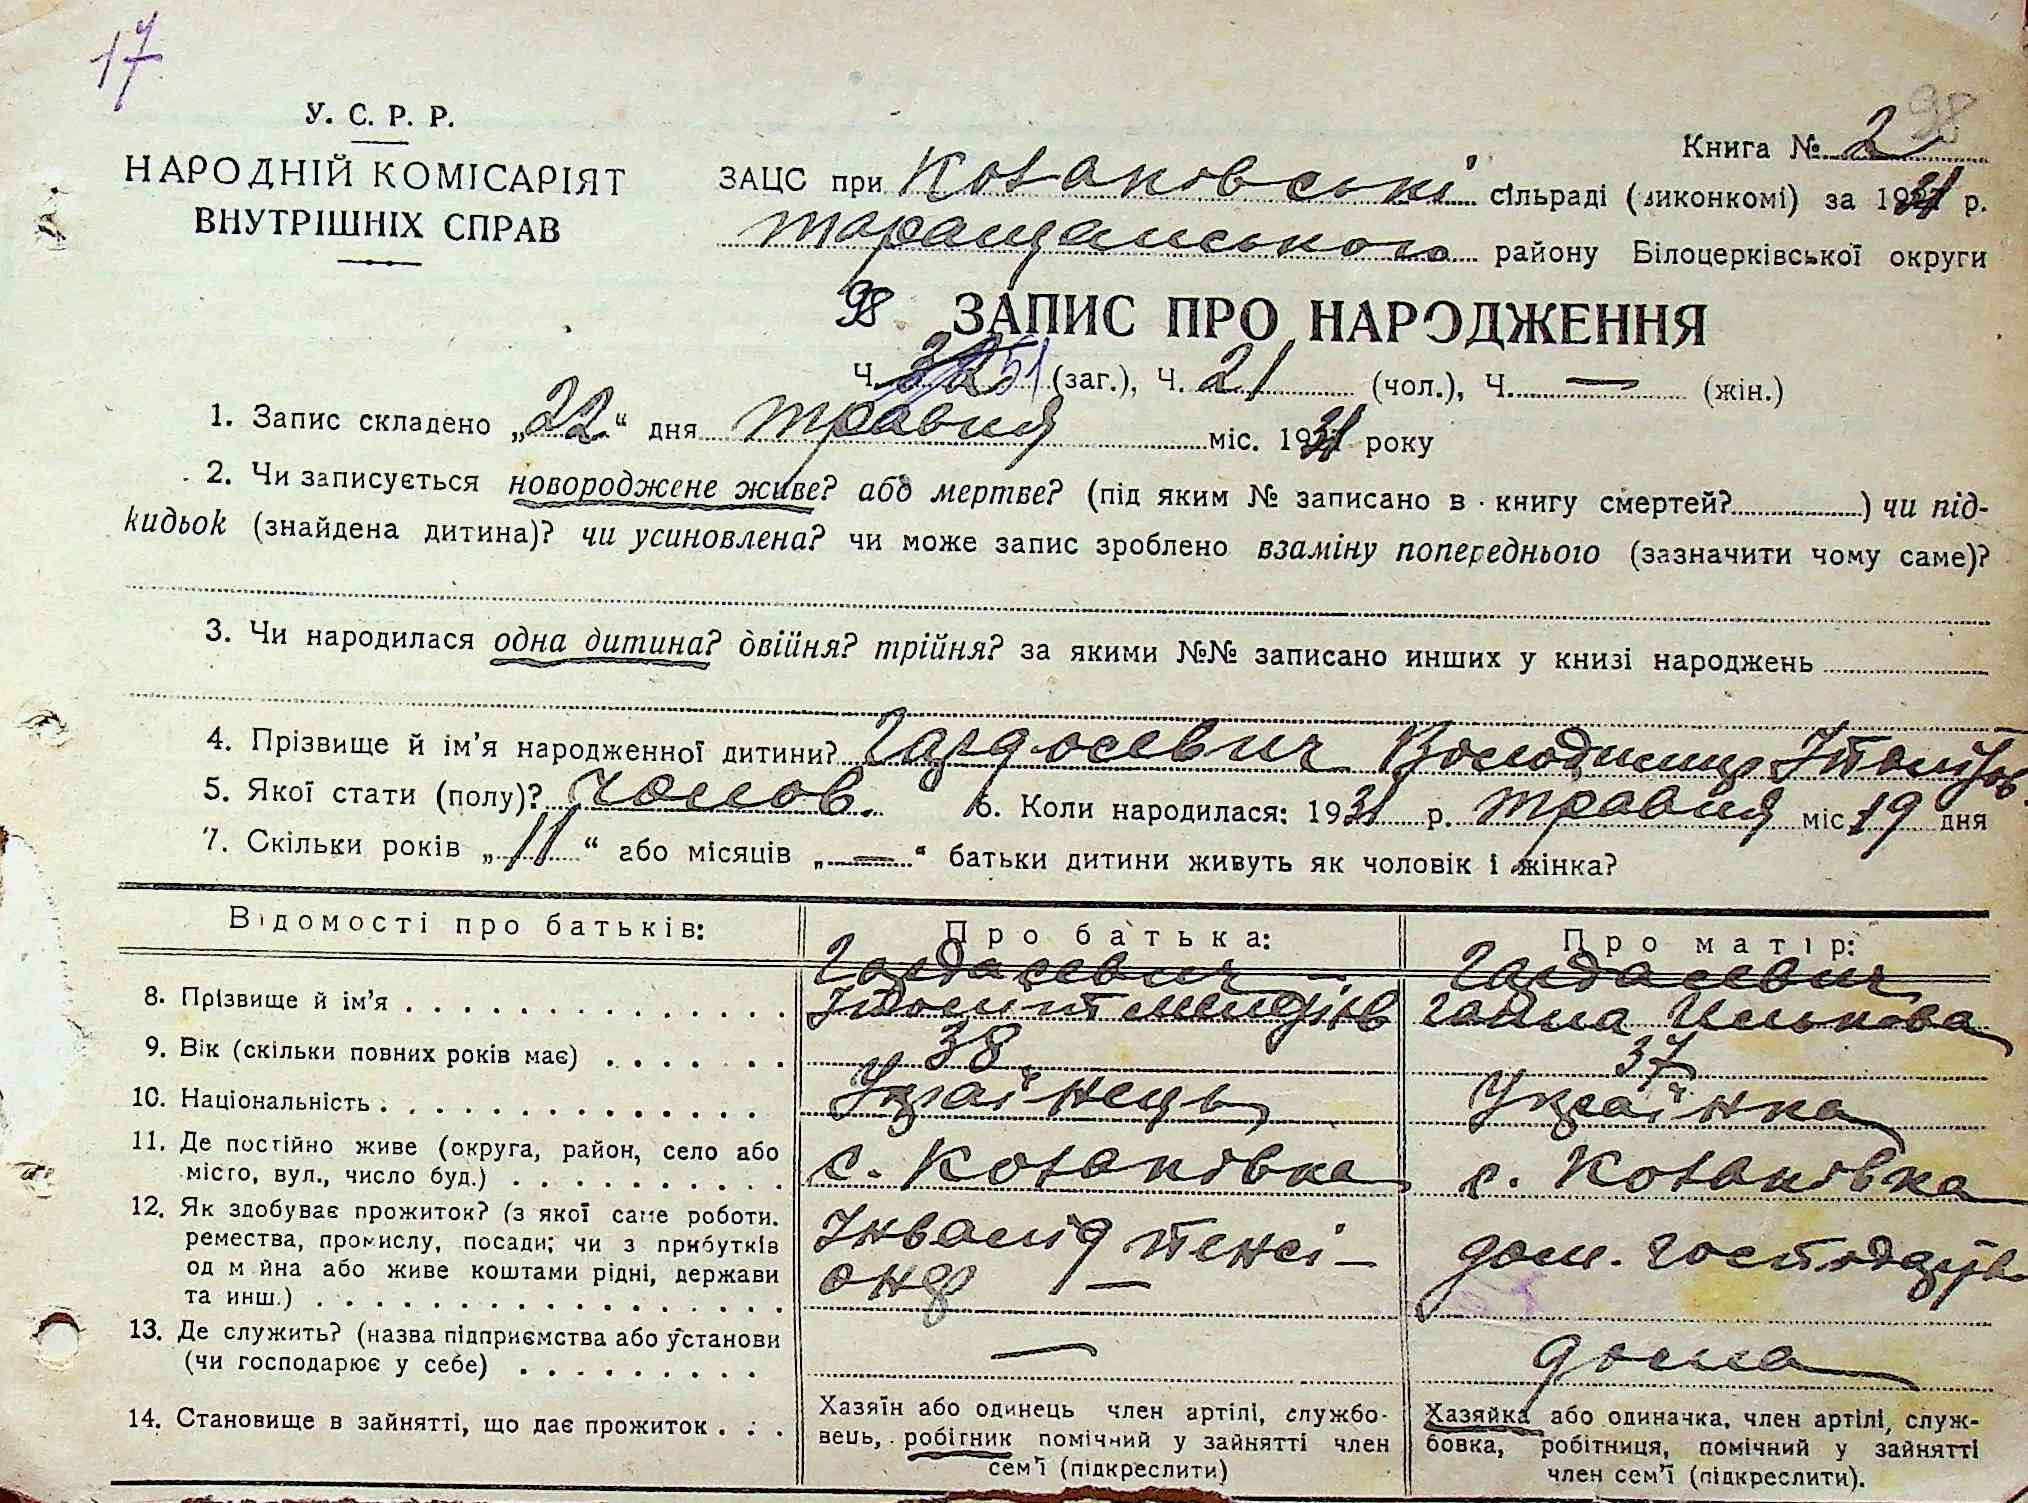 17
У. С. Р. Р.
НАРОДНІЙ КОМІСАРІЯТ
ВНУТРІШНІХ СПРАВ
98
Книга № 2
ЗАЦС при Козаковські сільраді (виконкомі) за 1931 р.
Таращанського району Білоцерківської округи
98 ЗАПИС ПРО НАРОДЖЕННЯ
Ч. 51 (заг.), Ч. 21 (чол.), Ч. — (жін.)
1. Запис складено „22“ дня травня міс. 1931 року
2. Чи записується новороджене живе? або мертве? (під яким № записано в книгу смертей?) чи під-
кидьок (знайдена дитина)? чи усиновлена? чи може запис зроблено взаміну попереднього (зазначити чому саме)?
3. Чи народилася одна дитина? двійня? трійня? за якими №№ записано инших у книзі народжень
4. Прізвище й ім’я народженної дитини? Володимир
5. Якої стати (полу)? чолов. 6. Коли народилася: 1931 р. травня міс 19 дня
7. Скільки років „11“ або місяців „—“ батьки дитини живуть як чоловік і жінка?
Відомості про батьків: Про батька: Про матір:
Гардасевич — Гардасевич
8. Прізвище й ім’я Ганна
9. Вік (скільки повних років має) 38 37
10. Національність Українець Українка
11. Де постійно живе (округа, район, село або
місто, вул., число буд.) с. Козаківка с. Козаківка
12. Як здобуває прожиток? (з якої саме роботи,
ремества, промислу, посади; чи з прибутків Інвалід пенсі— дом. господар
од м йна або живе коштами рідні, держави онер —
та инш.)
13. Де служить? (назва підприємства або установи
(чи господарює у себе) — дома
14. Становище в зайнятті, що дає прожиток
Хазяїн або одинець член артілі, службо-
вець, робітник помічний у зайнятті член
сем’ї (підкреслити)
Хазяйка або одиначка, член артілі, служ-
бовка, робітниця, помічний у зайнятті
член сем’ї (підкреслити).